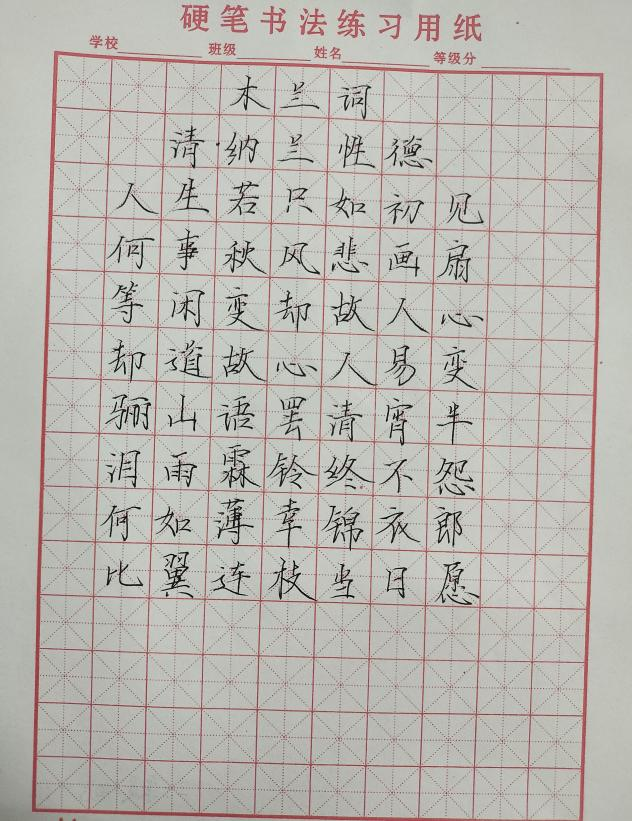 硬笔书法练习用纸
学校 班级 姓名 等级分
木兰词
清·纳兰性德
人生若只如初见
何事秋风悲画扇
等闲变却故人心
却道故心人易变
骊山语罢清宵半
泪雨霖铃终不怨
何如薄幸锦衣郎
比翼连枝当日愿